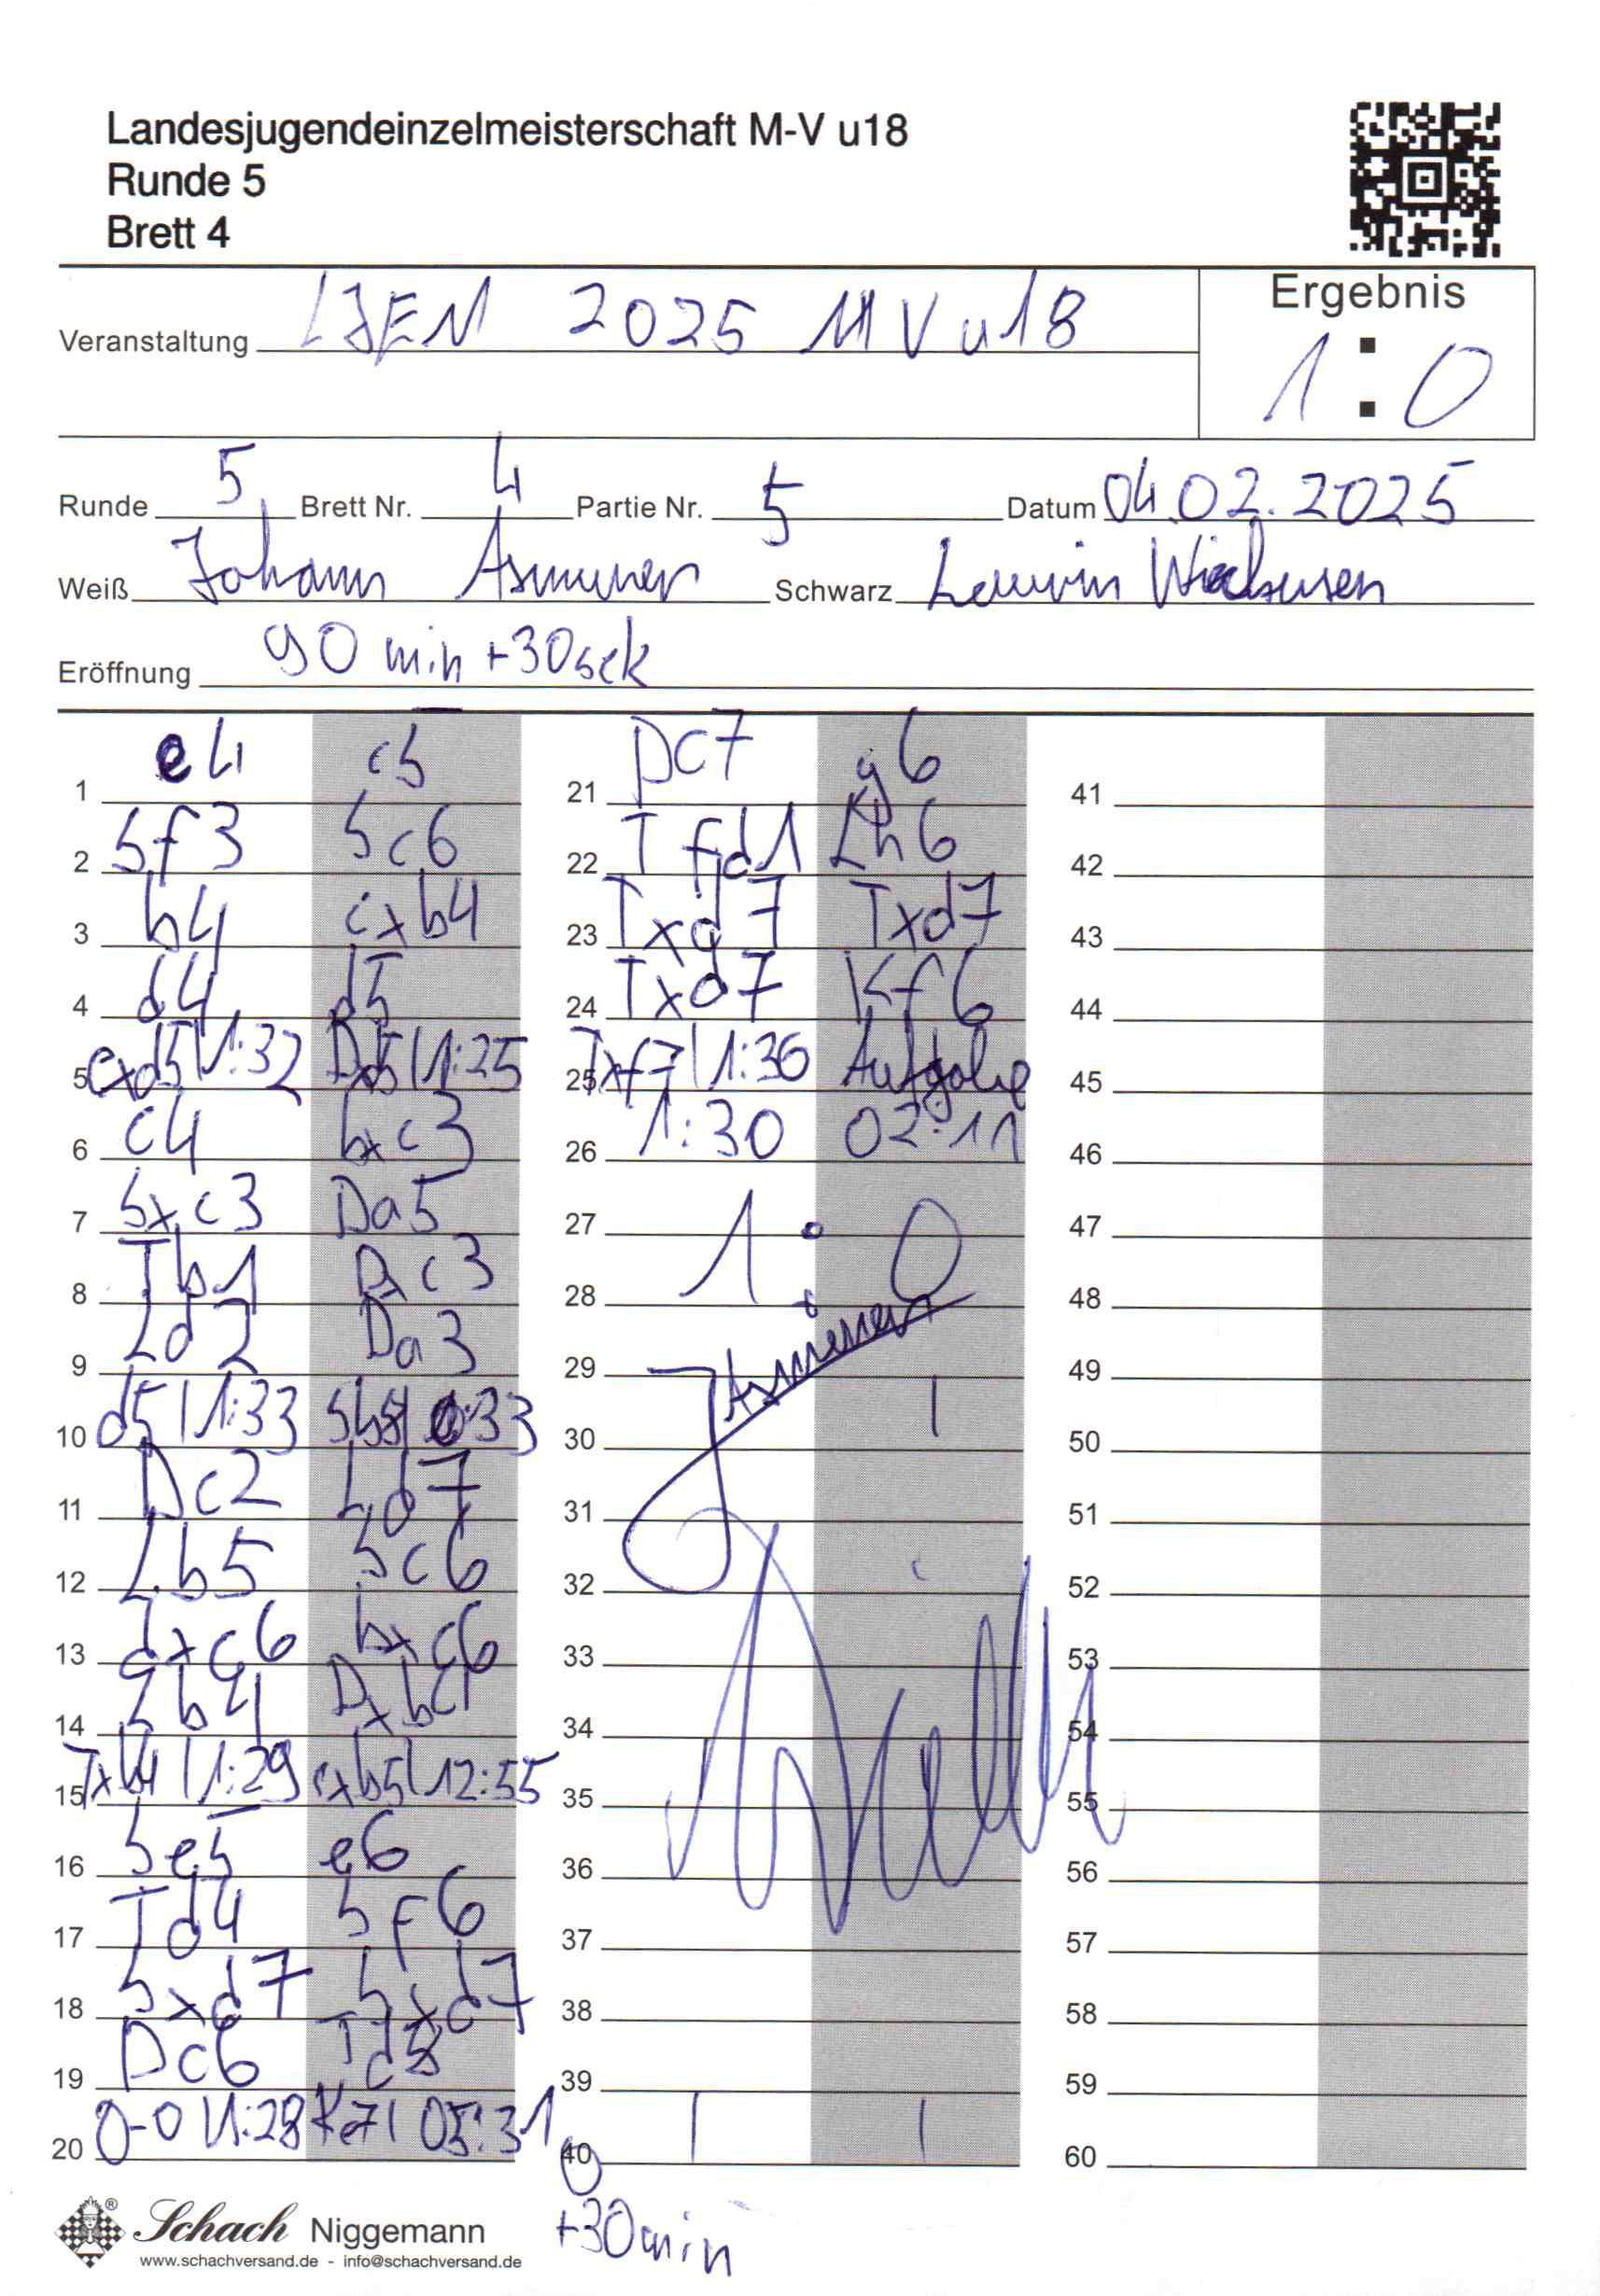 Landesjugendeinzelmeisterschaft M-V u18
Runde 5
Brett 4
Ergebnis
Veranstaltung LJEM 2025 MV u18
1 : 0
Runde 5 Brett Nr. 4 Partie Nr. 5 Datum 04.02.2025
Weiß Johann Schwarz
Eröffnung 90 min +30sek
1 e4 c5
2 Sf3 Sc6
3 b4 cxb4
4 d4 d5
5 exd5 | 1:32 Dxd5 | 1:25
6 c4 bxc3
7 Sxc3 Da5
8 Tb1 Dxc3
9 Ld2 Da3
10 d5 | 1:33 Sb8 | 0:33
11 Dc2 Ld7
12 Lb5 Sc6
13 dxc6 bxc6
14 Lb4 Dxb4
15 Txb4 | 1:29 cxb5 | 12:55
16 Se5 e6
17 Td4 Sf6
18 Sxd7 Sxd7
19 Dc6 Td8
20 0-0 | 1:28 Ke7 | 05:31
21 Dc7 g6
22 Tfd1 Lh6
23 Txd7 Txd7
24 Txd7 Kf6
25 Txf7 | 1:30 Aufgabe
26 1:30 02:11
27 1 : 0
28
29
30
31
32
33
34
35
36
37
38
39
40
+30min
41
42
43
44
45
46
47
48
49
50
51
52
53
54
55
56
57
58
59
60
Schach Niggemann
www.schachversand.de - info@schachversand.de